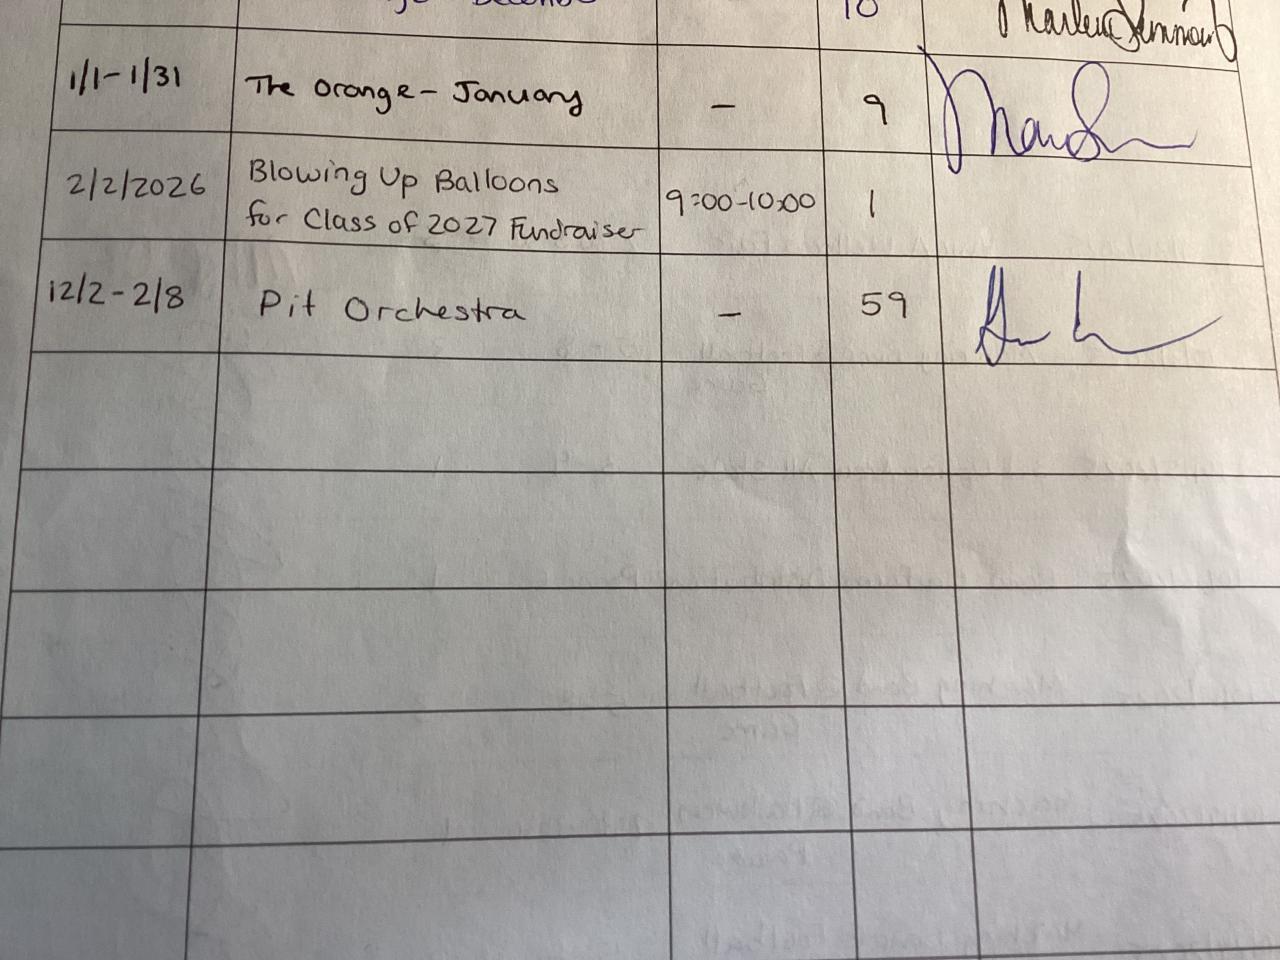 10
1/1-1/31 The Orange- January - 9
2/2/2026 Blowing Up Balloons
for Class of 2027 Fundraiser 9:00-10:00 1
12/2-2/8 Pit Orchestra - 59